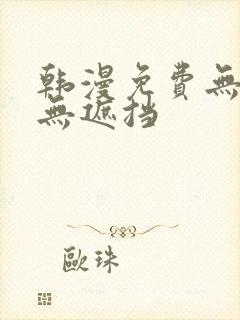 韩漫免費無
無遮挡
歐珠